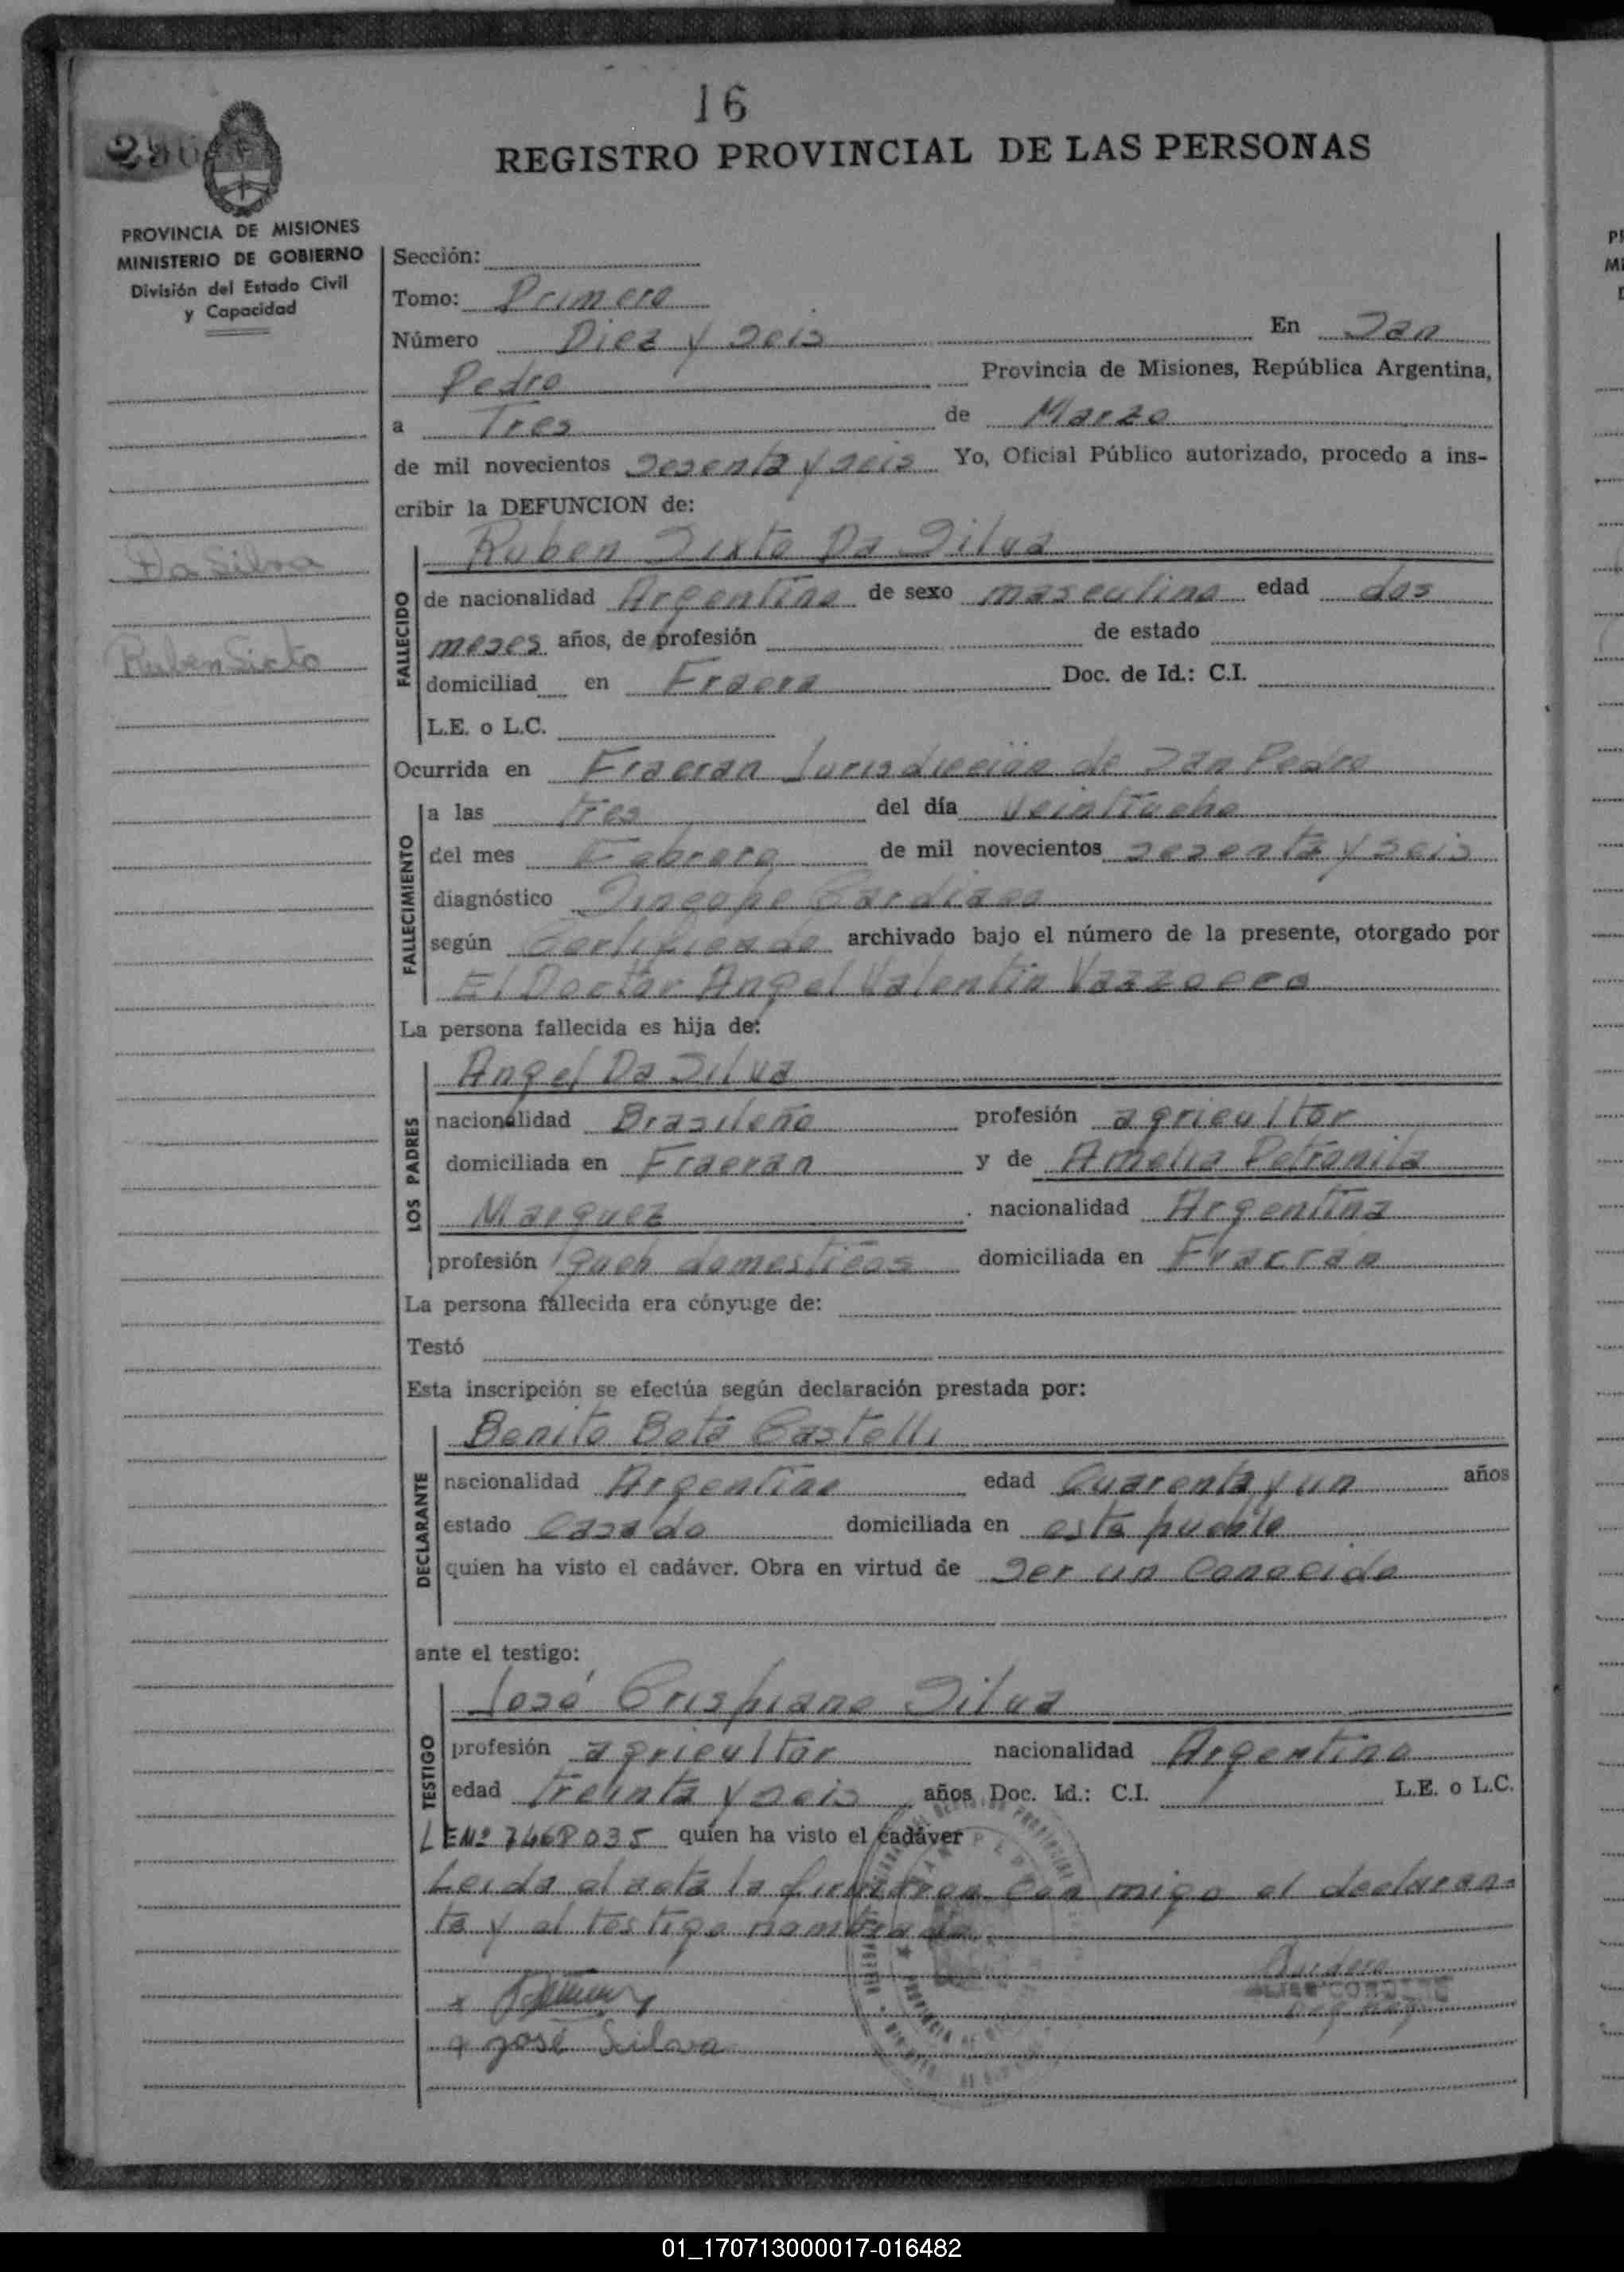 16
REGISTRO PROVINCIAL DE LAS PERSONAS
PROVINCIA DE MISIONES
MINISTERIO DE GOBIERNO
División del Estado Civil
y Capacidad
Da Silva
Ruben Sixto
Sección:
Tomo: Primero
Número Diez y seis En San
Pedro Provincia de Misiones, República Argentina,
a Tres de Marzo
de mil novecientos sesenta y seis Yo, Oficial Público autorizado, procedo a ins-
cribir la DEFUNCION de:
FALLECIDO
Ruben Sixto Da Silva
de nacionalidad Argentino de sexo masculino edad dos
meses años, de profesión de estado
domiciliad en Fracra Doc. de Id.: C.I.
L.E. o L.C.
Ocurrida en Fracran Jurisdiccion de San Pedro
FALLECIMIENTO
a las tres del día veintiocho
del mes Febrero de mil novecientos sesenta y seis
diagnóstico Sincope Cardiaco
según Certificado archivado bajo el número de la presente, otorgado por
El Doctor Angel Valentin
La persona fallecida es hija de:
LOS PADRES
Angel Da Silva
nacionalidad Brasileño profesión agricultor
domiciliada en Fracran y de Amelia Petronila
Marquez nacionalidad Argentina
profesión domesticos domiciliada en Fracran
La persona fallecida era cónyuge de:
Testó
Esta inscripción se efectúa según declaración prestada por:
DECLARANTE
Benito Bota Castelli
nacionalidad Argentino edad Cuarenta y un años
estado casado domiciliada en este pueblo
quien ha visto el cadáver. Obra en virtud de ser un Conocido
ante el testigo:
TESTIGO
José Crispiano Silva
profesión agricultor nacionalidad Argentino
edad treinta y seis años Doc. Id.: C.I. L.E. o L.C.
LE Nº 7468035 quien ha visto el cadáver
Leida el acta la firmaron con migo el declaran-
te y el testigo nombrado.
x José Silva
01_170713000017-016482